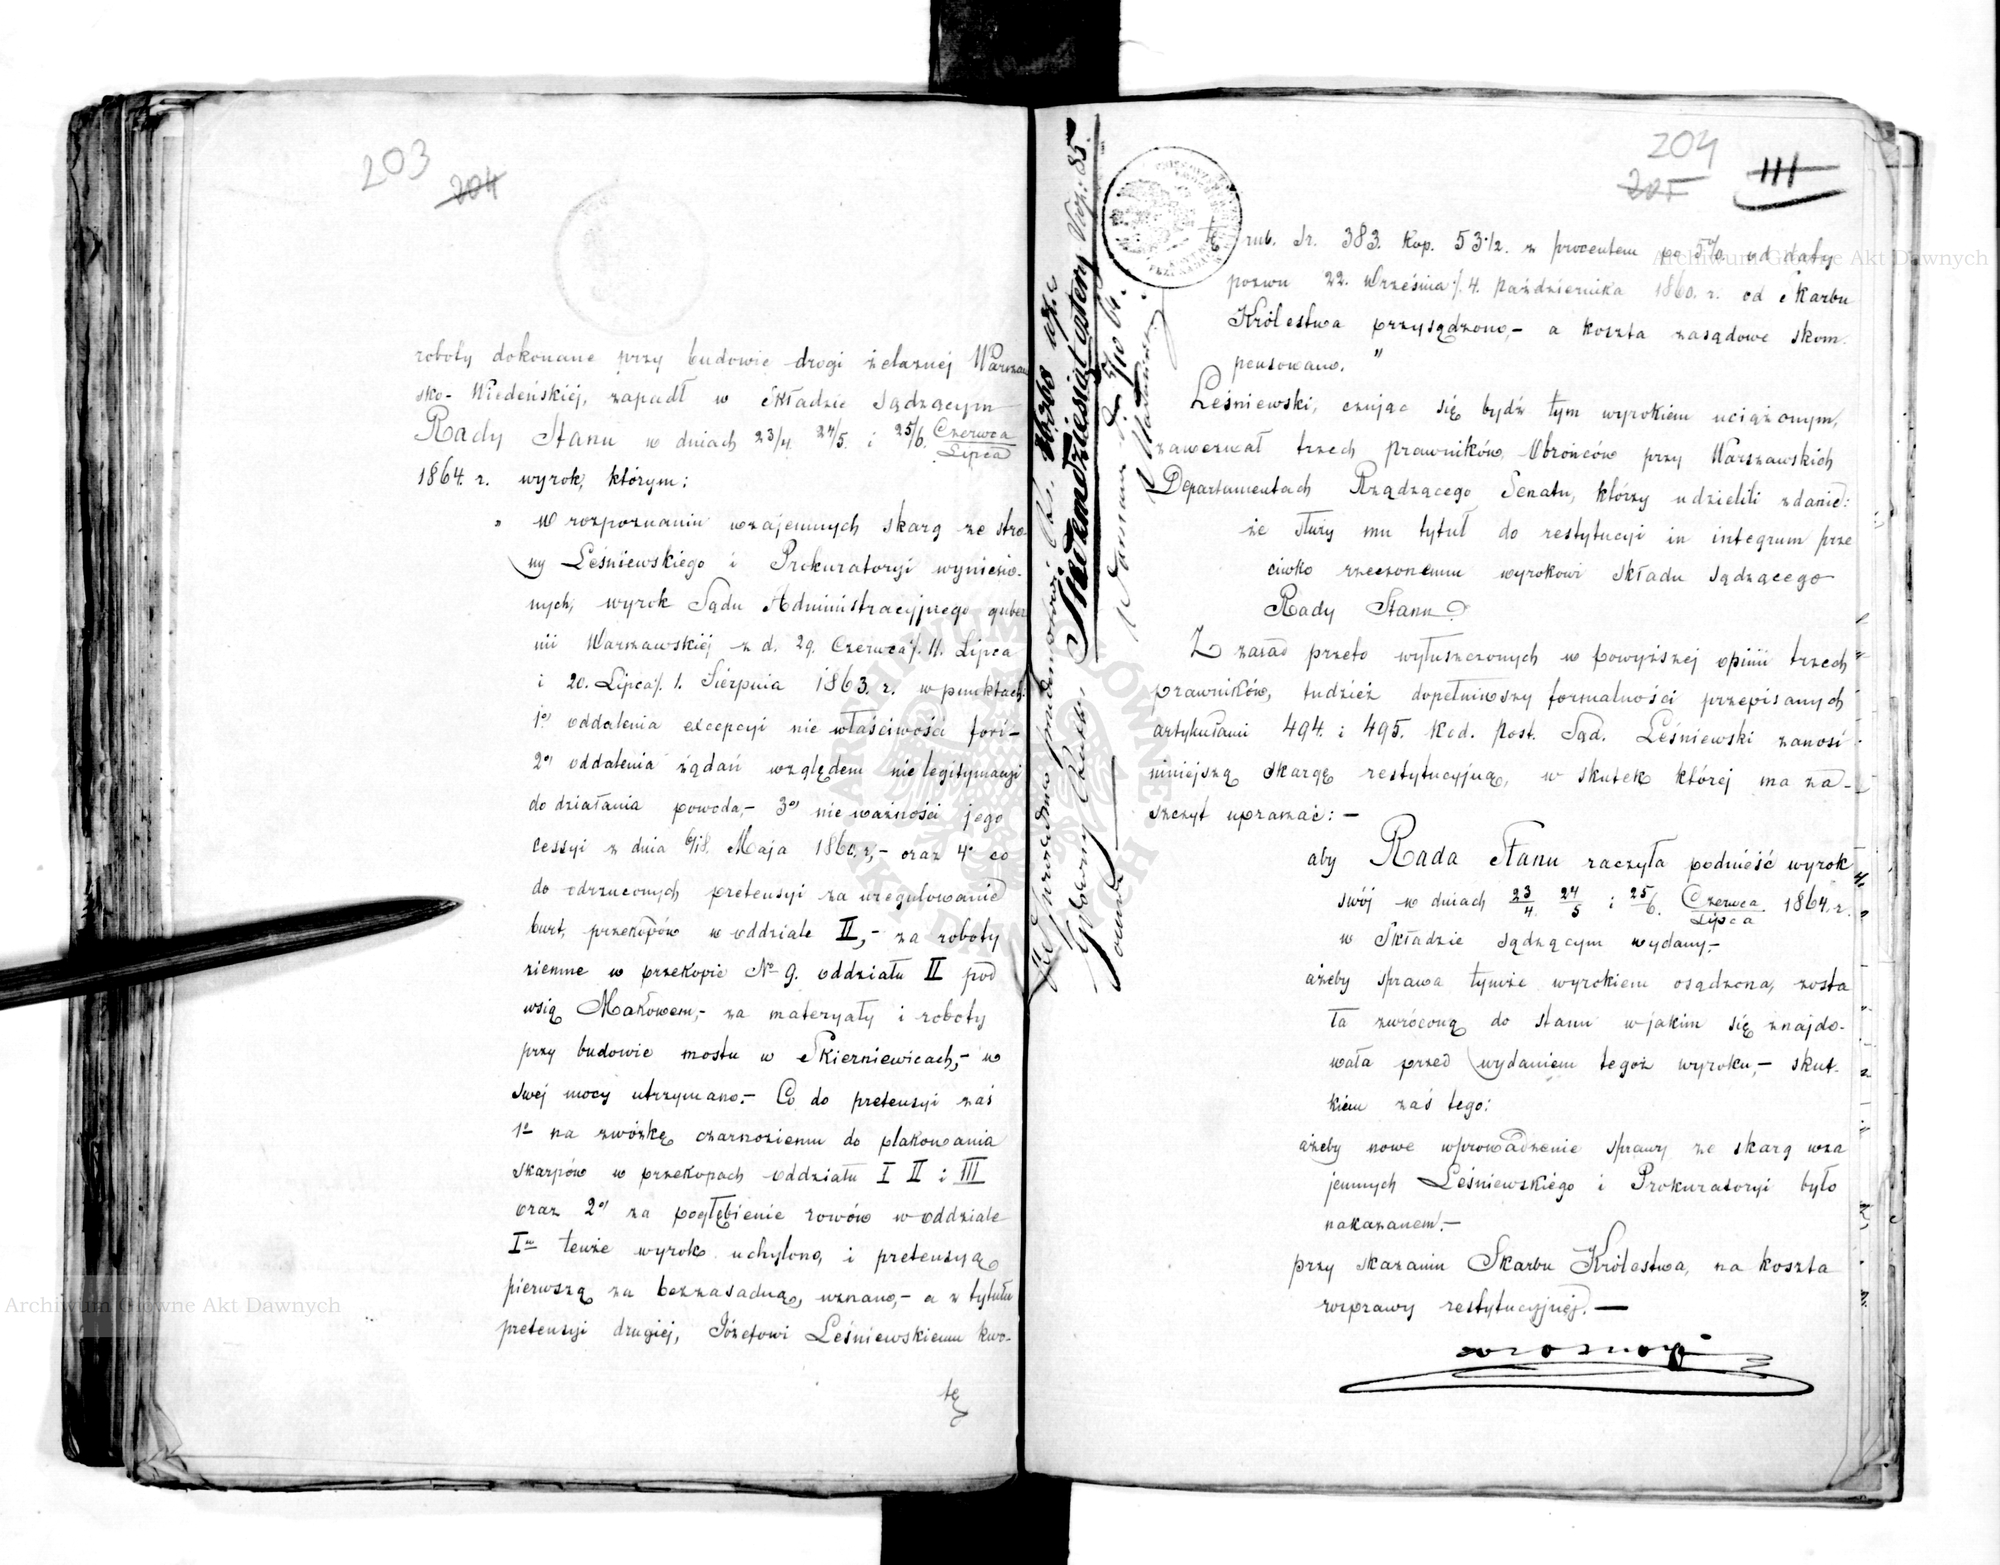 203
204
roboty dokonane przy budowie drogi żelaznej Warszaw
sko-Wiedeńskiéj, zapadł w Składzie Sądzącym
Rady Stanu w dniach 23/4. 24/5. i 25/6. Czerwca/Lipca
1864. r. wyrok, którym:
„W rozpoznaniu wzajemnych skarg ze stro-
ny Leśniewskiego i Prokuratoryi wyniesio-
nych, wyrok Sądu Administracyjnego guber
nii Warszawskiéj z d. 29. Czerwca/. 11. Lipca
i 20. Lipca/. 1. Sierpnia 1863. r. w punktach:
1o oddalenia excepcyi nie właściwości fori-
2o oddalenia żądań względem nielegitymacyi
do działania powoda,- 3o nieważności jego
cessyi z dnia 6/18. Maja 1860. r,- oraz 4o co
do odrzuconych pretensyi za uregulowanie
burt, przekopów w oddziale II,- za roboty
ziemne w przekopie No 9. oddziału II pod
wsią Makowem,- za materyały i roboty
przy budowie mostu w Skierniewicach,- w
swéj mocy utrzymano.- Co do pretensyi zaś
1o na zwózkę czarnoziemu do plakowania
skarpów w przekopach oddziału I II i III
oraz 2o za pogłębienie rowów w oddziale
Im tenże wyrok uchylono, i pretensyą
pierwszą za bezzasadną, uznano,- a z tytułu
pretensyi drugiéj, Józefowi Leśniewskiemu kwo-
tę
Słr.
Siedemdziesiąt cztery, kop: 85.
Główny
204
205
III
tę rub. sr. 383. kop. 53 1/2. z procentem po 5% od daty
pozwu 22. Września/. 4. Października 1860. r. od Skarbu
Królestwa przysądzono,- a koszta zasądowe skom-
pensowano."
Leśniewski, czując się bydź tym wyrokiem uciążonym,
zawezwał trzech prawników, Obrońców przy Warszawskich
Departamentach Rządzącego Senatu, którzy udzielili zdanie:
że służy mu tytuł do restytucyi in integrum prze
ciwko rzeczonemu wyrokowi Składu Sądzącego
Rady Stanu.
Z zasad przeto wyłuszczonych w powyższéj opinii trzech
prawników, tudzież dopełniwszy formalności przepisanych
artykułami 494. i 495. Kod. Post. Sąd. Leśniewski zanosi
niniejszą skargę restytucyjną, w skutek któréj ma za-
szczyt upraszać: -
aby Rada Stanu raczyła podnieść wyrok
swój w dniach 23/4. 24/5 i 25/6. Czerwca/Lipca 1864. r.
w Składzie sądzącym wydany.-
ażeby sprawa tymże wyrokiem osądzona, zosta
ła zwróconą do stanu w jakim się znajdo-
wała przed wydaniem tegoż wyroku,- skut-
kiem zaś tego:
ażeby nowe wprowadzenie sprawy ze skarg wza
jemnych Leśniewskiego i Prokuratoryi było
nakazanem.-
przy skazaniu Skarbu Królestwa, na koszta
rozprawy restytucyjnéj.-
Archiwum Główne Akt Dawnych
Archiwum Główne Akt Dawnych
ARCHIWUM GŁÓWNE AKT DAWNYCH